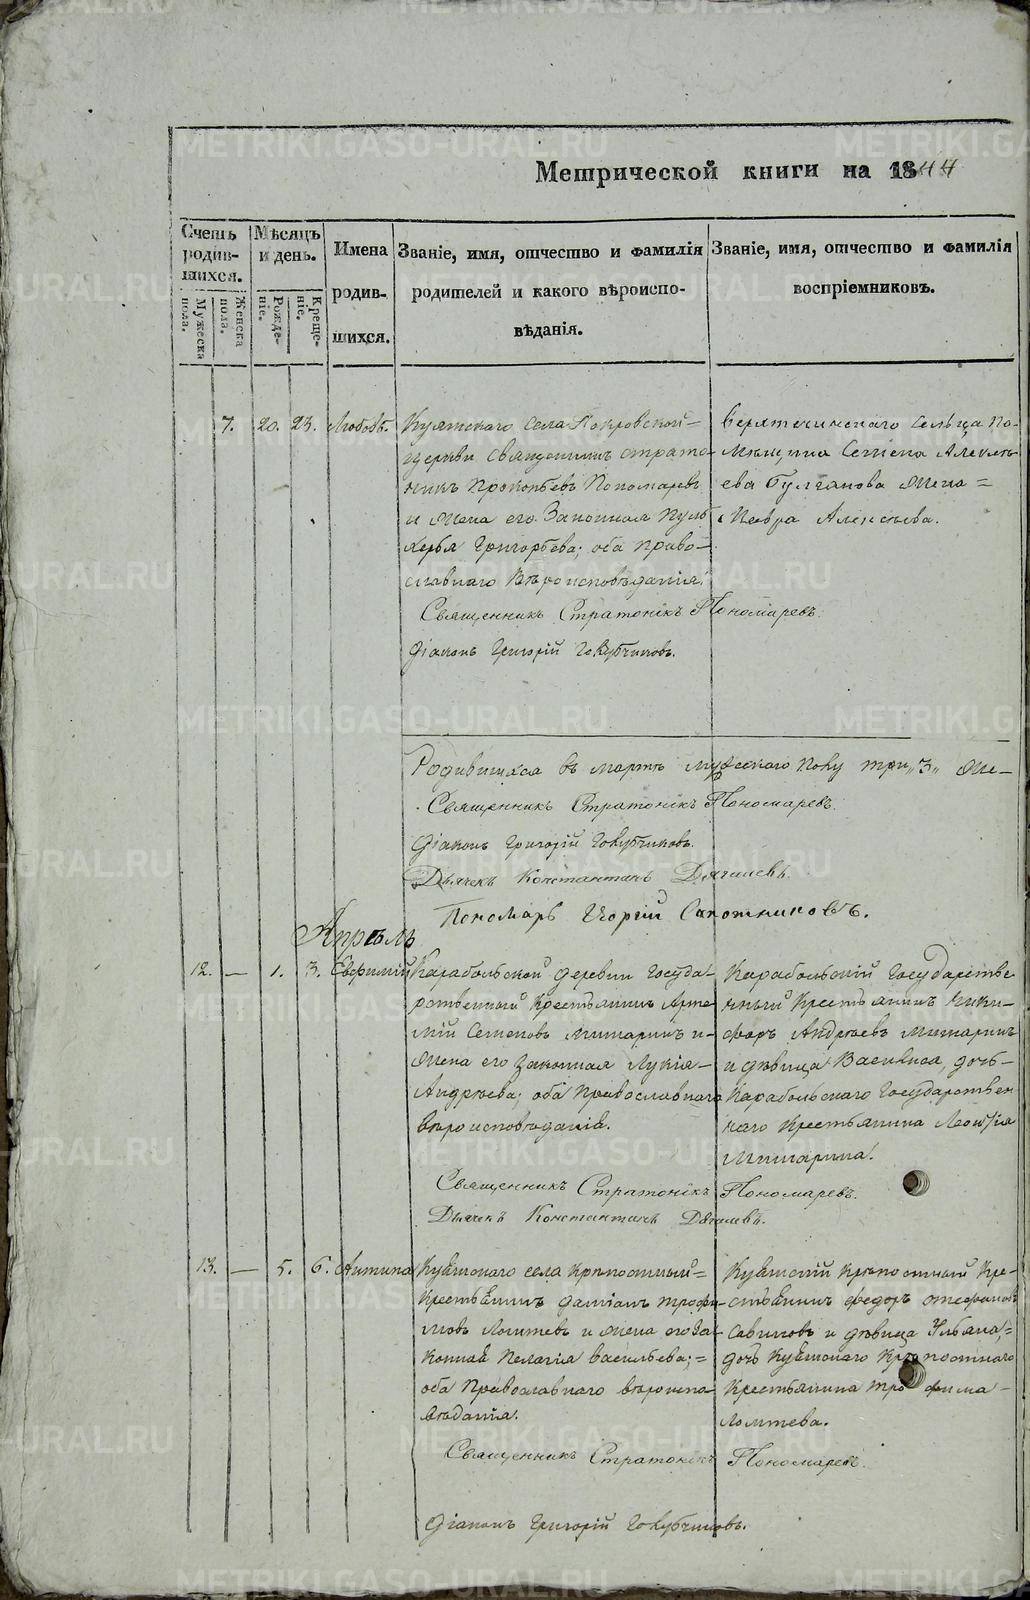 Метрической книги на 1844
Счетъ родив-шихся.
Мужеска пола.
Женска пола.
Мѣсяцъ и день.
Рожде-ніе.
Креще-ніе.
Имена
родив-
шихся.
Званіе, имя, отчество и фамилія
родителей и какого вѣроиспо-
вѣданія.
Званіе, имя, отчество и фамилія
воспріемниковъ.
7. 20. 23. Любовь.
села Покровской
церкви священникъ Страто-
никъ Прокопьевъ Пономаревъ
и жена его Законная Пуль-
херья Григорьева; оба Право-
славнаго Вѣроисповѣданія.
сельца По-
мѣщика Семена Алексѣ-
ева Булганова жена =
Мавра Алексѣева.
Священникъ Стратоникъ Пономаревъ.
Діаконъ Григорій Голубчиковъ.
Родившихся въ мартѣ мужескаго полу три „3„ же-
Священникъ Стратоникъ Пономаревъ.
Діаконъ Григорій Голубчиковъ.
Дьячекъ Константинъ Дягилевъ.
Пономарь Егоргій Сапожниковъ.
Апрѣль
12. — 1. 3. Евфимій
Карабольской деревни Госуда-
рственный Крестьянинъ Арте-
мій Семеновъ Мишаринъ и
жена его Законная Лукія
Андреева; оба Православнаго
вѣроисповѣданія.
Карабольскій Государстве-
нный Крестьянинъ Ники-
форъ Андреевъ Мишаринъ
и дѣвица Василиса, дочь
Карабольскаго Государствен-
наго Крестьянина Леонтія
Мишарина.
Священникъ Стратоникъ Пономаревъ.
Дьячекъ Константинъ Дягилевъ.
13. — 5. 6. Антипа
села крѣпостный =
Крестьянинъ Даміанъ Трофи-
мовъ Ломтевъ и жена его За-
конная Пелагія Васильева; =
оба Православнаго вѣроиспо-
вѣданія.
крѣпостный Кре-
стьянинъ Федоръ Стефановъ
Савиновъ и дѣвица Ульяна, =
дочь Крѣпостнаго
Крестьянина Трофима
Ломтева.
Священникъ Стратоникъ Пономаревъ.
Діаконъ Григорій Голубчиковъ.
METRIKI.GASO-URAL.RU